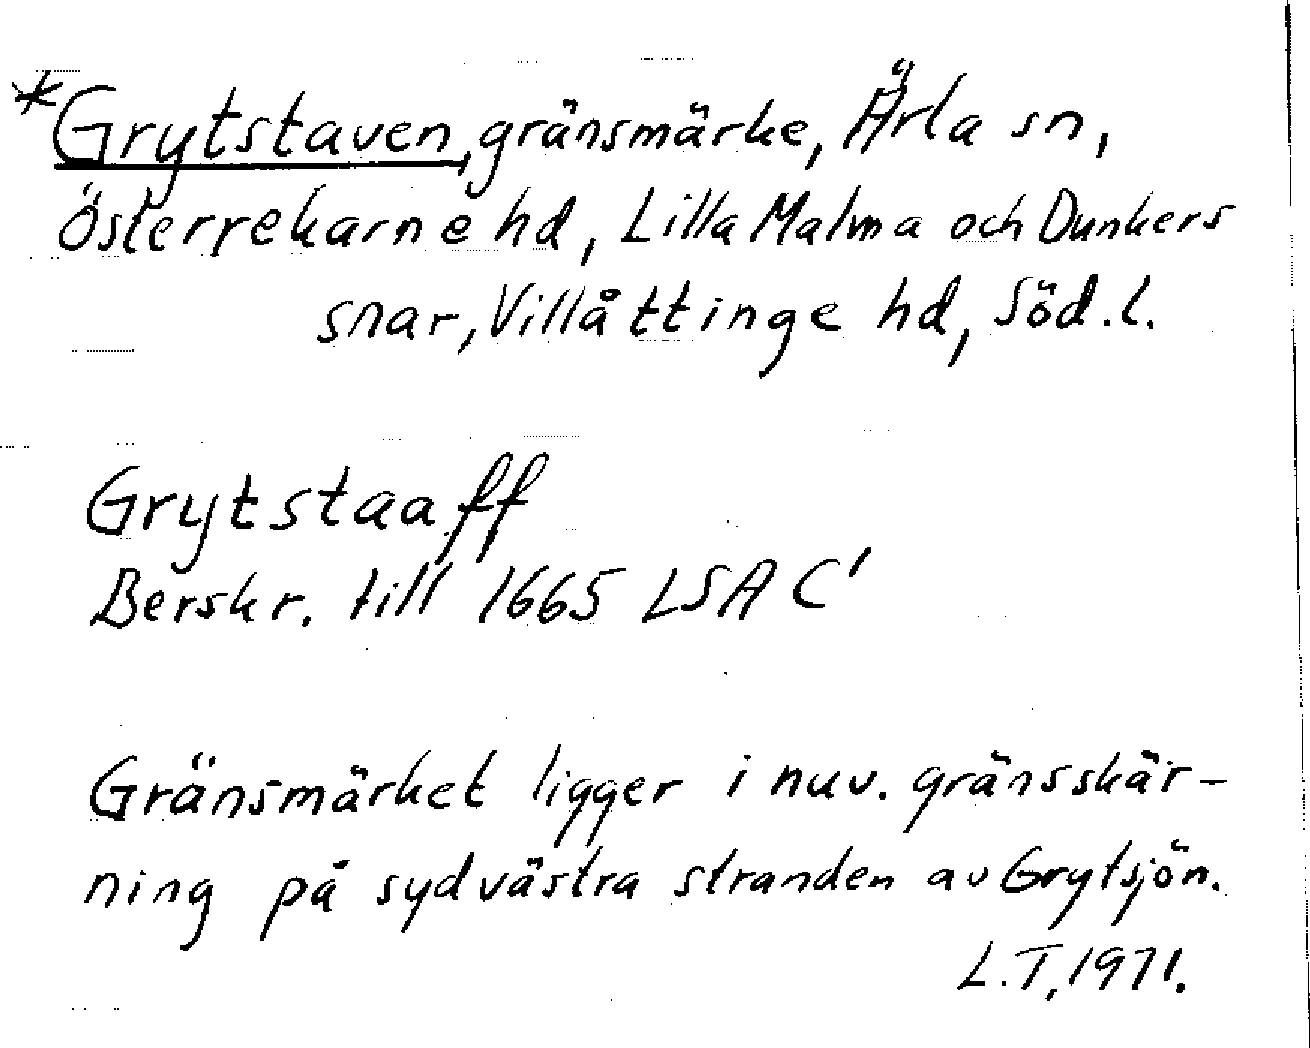 *Grytstaven, gränsmärke, Ärla sn,
Österrekarne hd, Lilla Malma och Dunkers
snar, Villåttinge hd, Söd.l.
Grytstaaff
Berskr. till 1665 LSA C'
Gränsmärket ligger i nuv. gränsskär-
ning på sydvästra stranden av Grytsjön.
L.T. 1971.